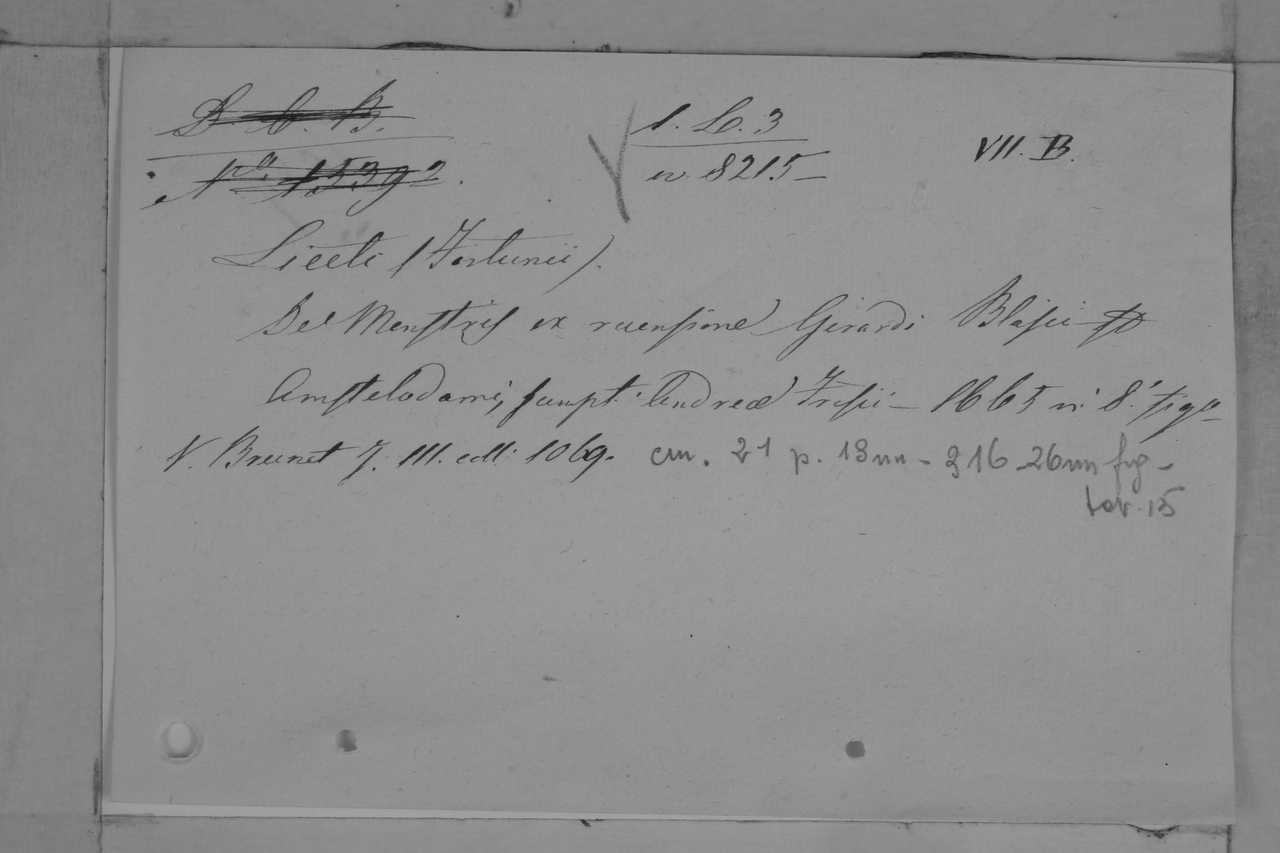 D. C. B.
N.º 15392.
1. L. 3
n 8215
VII. B.
Liceti (Fortunii).
De Monstris ex recensione Gerardi Blasii
Amstelodami, sumpt. Andreæ Frisii – 1665 in 8.º fig.º
V. Brunet T. III. coll. 1069. cm. 21 p. 18nn – 316 – 26nn fig –
tav. 15